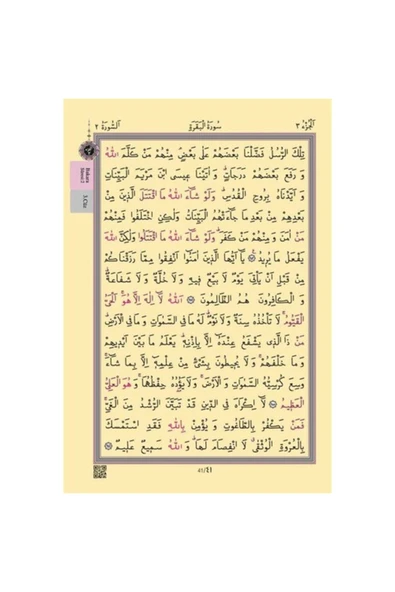 اَلْجُزْءُ ٣
سُورَةُ الْبَقَرَةِ
اَلسُّورَةُ ٢
تِلْكَ الرُّسُلُ فَضَّلْنَا بَعْضَهُمْ عَلٰى بَعْضٍ مِنْهُمْ مَنْ كَلَّمَ اللّٰهُ
وَرَفَعَ بَعْضَهُمْ دَرَجَاتٍ وَاٰتَيْنَا عِيسَى ابْنَ مَرْيَمَ الْبَيِّنَاتِ
وَاَيَّدْنَاهُ بِرُوحِ الْقُدُسِ وَلَوْ شَاءَ اللّٰهُ مَا اقْتَتَلَ الَّذِينَ مِنْ
بَعْدِهِمْ مِنْ بَعْدِ مَا جَاءَتْهُمُ الْبَيِّنَاتُ وَلٰكِنِ اخْتَلَفُوا فَمِنْهُمْ
مَنْ اٰمَنَ وَمِنْهُمْ مَنْ كَفَرَ وَلَوْ شَاءَ اللّٰهُ مَا اقْتَتَلُوا وَلٰكِنَّ اللّٰهَ
يَفْعَلُ مَا يُرِيدُ يَا اَيُّهَا الَّذِينَ اٰمَنُوا اَنْفِقُوا مِمَّا رَزَقْنَاكُمْ
مِنْ قَبْلِ اَنْ يَأْتِيَ يَوْمٌ لَا بَيْعٌ فِيهِ وَلَا خُلَّةٌ وَلَا شَفَاعَةٌ
وَالْكَافِرُونَ هُمُ الظَّالِمُونَ اَللّٰهُ لَا اِلٰهَ اِلَّا هُوَ اَلْحَيُّ
الْقَيُّومُ لَا تَأْخُذُهُ سِنَةٌ وَلَا نَوْمٌ لَهُ مَا فِي السَّمٰوَاتِ وَمَا فِي الْاَرْضِ
مَنْ ذَا الَّذِي يَشْفَعُ عِنْدَهُ اِلَّا بِاِذْنِهِ يَعْلَمُ مَا بَيْنَ اَيْدِيهِمْ
وَمَا خَلْفَهُمْ وَلَا يُحِيطُونَ بِشَيْءٍ مِنْ عِلْمِهِ اِلَّا بِمَا شَاءَ
وَسِعَ كُرْسِيُّهُ السَّمٰوَاتِ وَالْاَرْضَ وَلَا يَؤُ۫دُهُ حِفْظُهُمَا وَهُوَ الْعَلِيُّ
الْعَظِيمُ لَا اِكْرَاهَ فِي الدِّينِ قَدْ تَبَيَّنَ الرُّشْدُ مِنَ الْغَيِّ
فَمَنْ يَكْفُرْ بِالطَّاغُوتِ وَيُؤْمِنْ بِاللّٰهِ فَقَدِ اسْتَمْسَكَ
بِالْعُرْوَةِ الْوُثْقٰى لَا انْفِصَامَ لَهَا وَاللّٰهُ سَمِيعٌ عَلِيمٌ
41/٤١
Bakara
Sûresi 2
3.Cüz